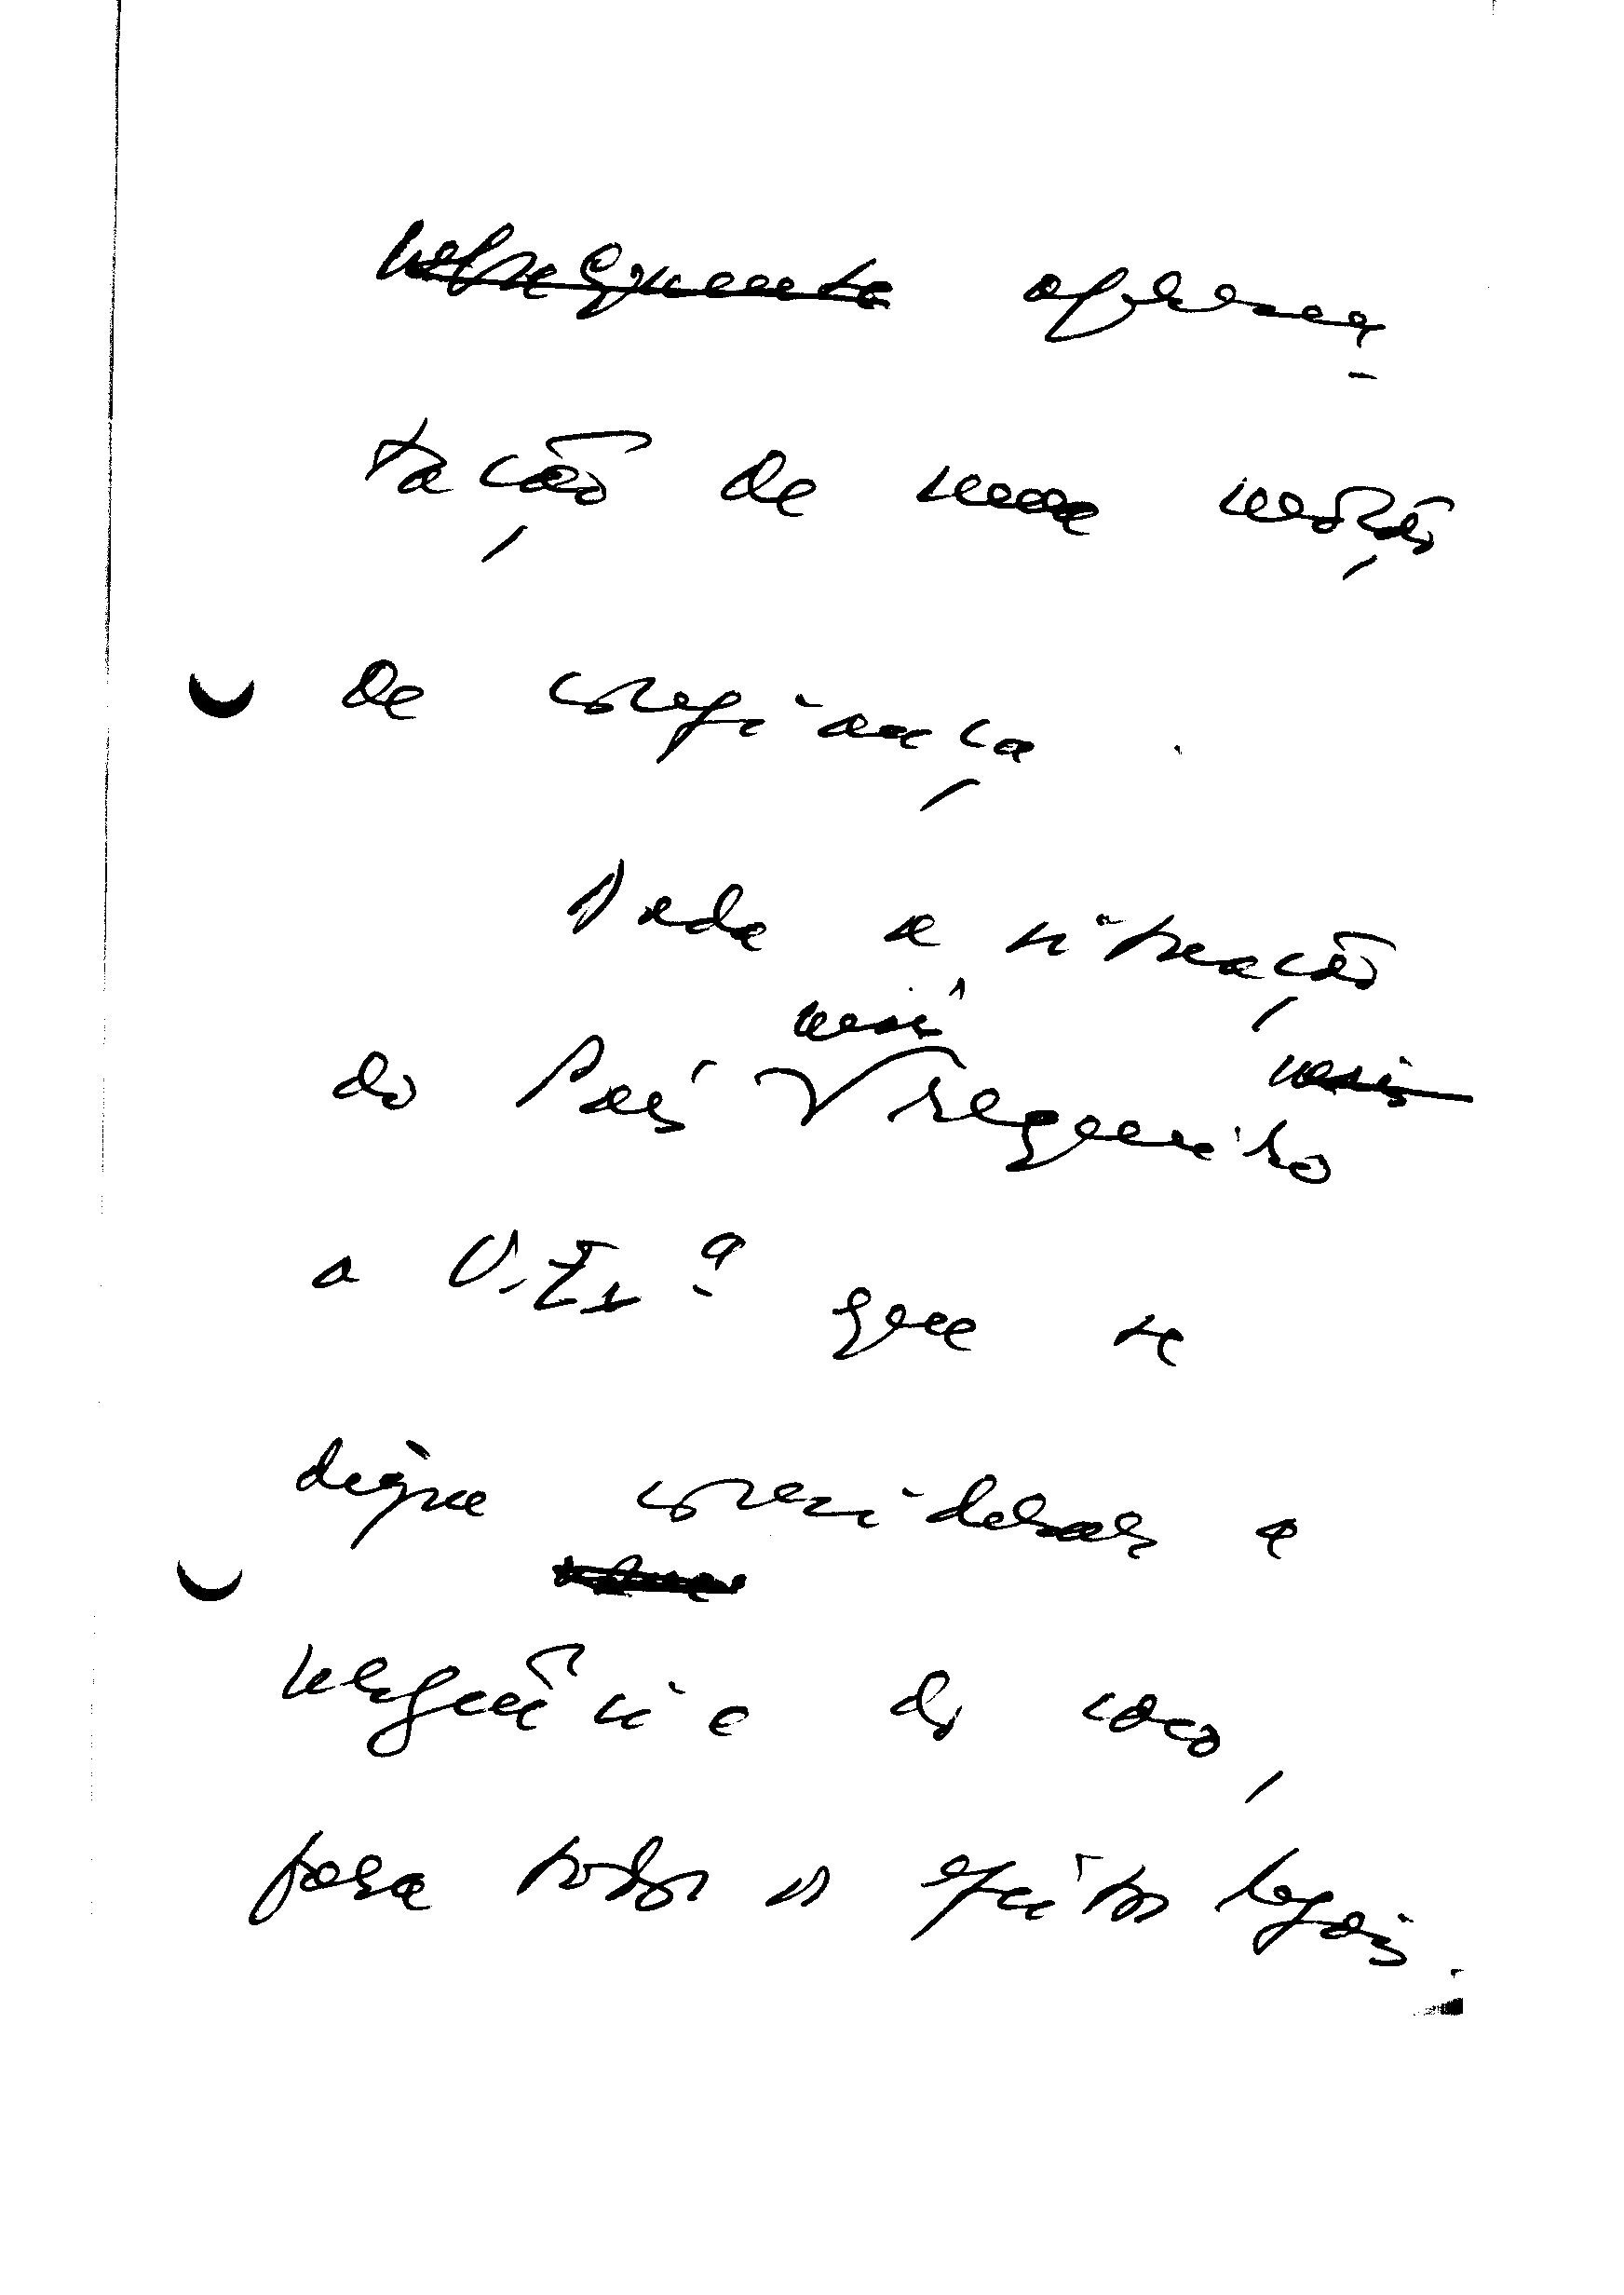 apresen-
tação de uma moção
de confiança.
Dada a situação
do País requeiro
a V. Ex.ª que se
digne considerar a
urgência do caso,
para todos os efeitos legais.